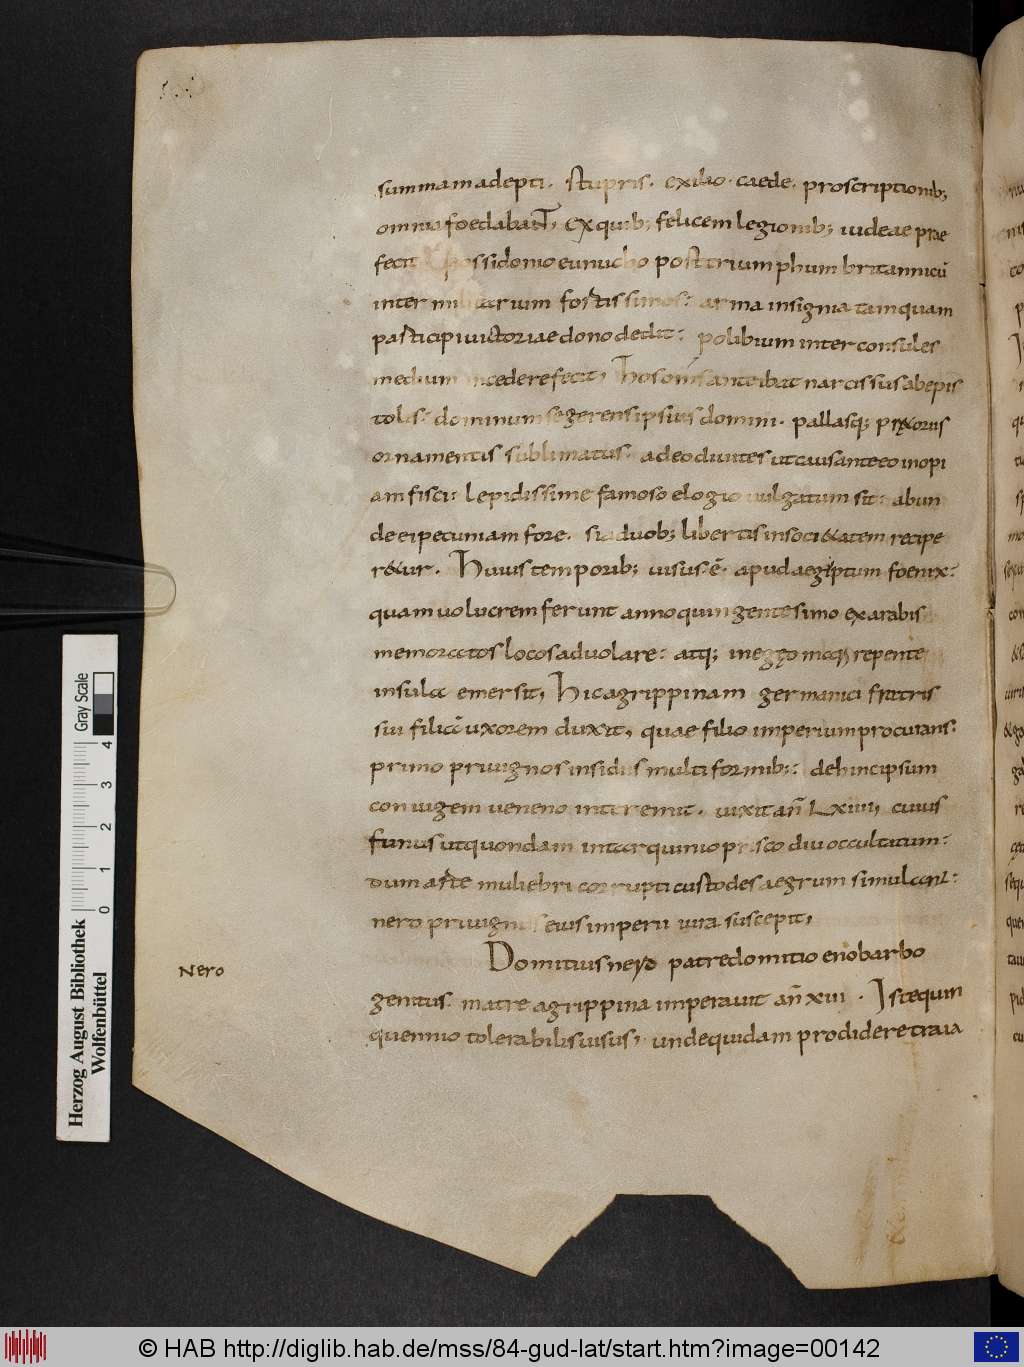 summam adepti. stupris. exilio. caede. proscriptionib;
omnia foedabant, Ex quib; felicem legionib; iudeae prae
fecit possidonio eunucho post triumphum britannicū
inter militarium fortissimos: arma insignia tamquam
participi victoriae dono dedit: polibium inter consules
medium incedere fecit, Hos om̄s anteibat narcissus ab epis
tolis: dominum se gerens ipsius domini. pallasq; p&oriis
ornamentis sublimatus. adeo divites ut causante eo inopi
am fisci: lepidissime famoso elogio vulgatum sit: abun
de ei pecuniam fore. si a duob; libertis in soci&atem recipe
r&ur. Huius temporib; visus ē apud aegiptum foenix:
quam volucrem ferunt anno quingentesimo ex arabis
memoratos locos advolare: atq; in egęo mari repente
insula emersit, Hic agrippinam germanici fratris
sui filiā uxorem duxit, quae filio imperium procurans:
primo privignos insidiis multiformib;: dehinc ipsum
coniugem veneno interemit. vixit an̄ Lxiiii, cuius
funus ut quondam in tarquinio prisco diu occultatum:
dum arte muliebri corrupti custodes aegrum simulant:
nero privignus eius imperii iura suscepit,
Nero
Domitius nero patre domitio enobarbo
genitus matre agrippina imperavit an̄ xiii. Iste quin
quennio tolerabilis visus, unde quidam prodidere traia
Herzog August Bibliothek
Wolfenbüttel
0 1 2 3 4
Gray Scale
© HAB http://diglib.hab.de/mss/84-gud-lat/start.htm?image=00142